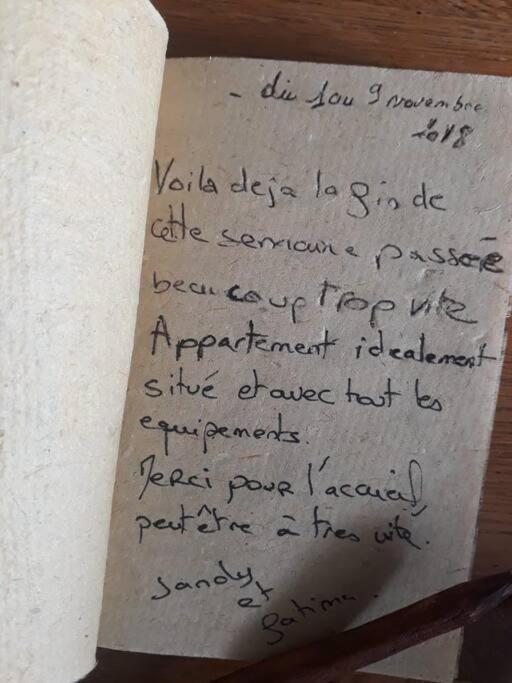 - du 1 au 9 novembre
2018
Voila deja la fin de
cette semaine passée
beaucoup trop vite
Appartement idealement
situé et avec tout les
equipements.
Merci pour l'accueil,
peut être à tres vite.
Sandy
et
fatima.